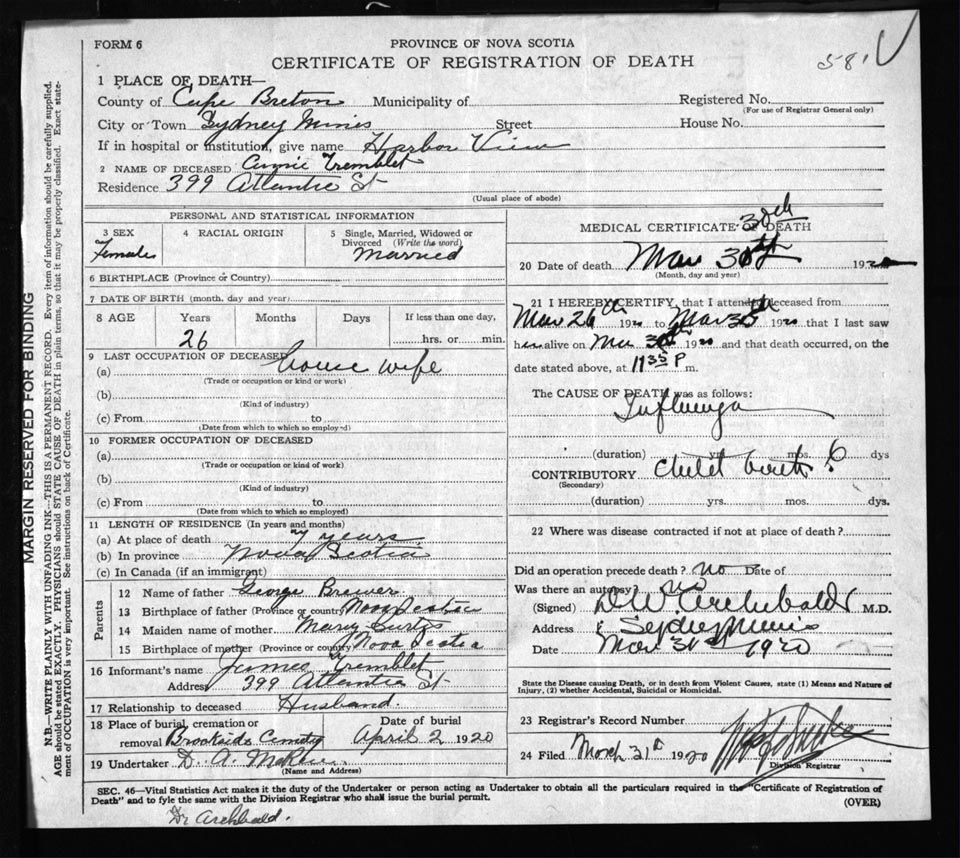 FORM 6
PROVINCE OF NOVA SCOTIA
CERTIFICATE OF REGISTRATION OF DEATH
581
1 PLACE OF DEATH—
County of Cape Breton Municipality of
Registered No.
(For use of Registrar General only)
City or Town Sydney Mines Street
House No.
If in hospital or institution, give name Harbor View
2 NAME OF DECEASED Annie Tremblet
Residence 399 Atlantic St
(Usual place of abode)
PERSONAL AND STATISTICAL INFORMATION
3 SEX
Female
4 RACIAL ORIGIN
5 Single, Married, Widowed or
Divorced (Write the word)
Married
6 BIRTHPLACE (Province or Country)
7 DATE OF BIRTH (month, day and year)
8 AGE Years Months Days If less than one day,
26 hrs. or min.
9 LAST OCCUPATION OF DECEASED
(a) house wife
(Trade or occupation or kind or work)
(b)
(Kind of industry)
(c) From to
(Date from which to which so employed)
10 FORMER OCCUPATION OF DECEASED
(a)
(Trade or occupation or kind of work)
(b)
(Kind of industry)
(c) From to
(Date from which to which so employed)
11 LENGTH OF RESIDENCE (In years and months)
(a) At place of death 7 years
(b) In province Nova Scotia
(c) In Canada (if an immigrant)
Parents
12 Name of father George Brewer
13 Birthplace of father (Province or country) Nova Scotia
14 Maiden name of mother Mary Curtis
15 Birthplace of mother (Province or country) Nova Scotia
16 Informant's name James Tremblet
Address 399 Atlantic St
17 Relationship to deceased Husband.
18 Place of burial, cremation or
removal Brookside Cemetry
Date of burial
April 2 1920
19 Undertaker D. A.
(Name and Address)
MEDICAL CERTIFICATE OF DEATH
30th
20 Date of death Mar 30th 1920
(Month, day and year)
21 I HEREBY CERTIFY, that I attended deceased from
Mar 26th 1920 to Mar 30th 1920 that I last saw
her alive on Mar 30th 1920 and that death occurred, on the
date stated above, at 11 35 P m.
The CAUSE OF DEATH was as follows:
Influenza
(duration) yrs. mos. 6 dys
CONTRIBUTORY Child birth
(Secondary)
(duration) yrs. mos. dys.
22 Where was disease contracted if not at place of death?
Did an operation precede death? no Date of
Was there an autopsy no
(Signed) D W Archibald M.D.
Address Sydney Mines
Date Mar 31st 1920
State the Disease causing Death, or in death from Violent Causes, state (1) Means and Nature of
Injury, (2) whether Accidental, Suicidal or Homicidal.
23 Registrar's Record Number
24 Filed March 31st 1920
Division Registrar
SEC. 46—Vital Statistics Act makes it the duty of the Undertaker or person acting as Undertaker to obtain all the particulars required in the "Certificate of Registration of
Death" and to fyle the same with the Division Registrar who shall issue the burial permit.
(OVER)
Dr Archbald.
MARGIN RESERVED FOR BINDING
N.B.—WRITE PLAINLY WITH UNFADING INK—THIS IS A PERMANENT RECORD. Every item of information should be carefully supplied.
AGE should be stated EXACTLY. PHYSICIANS should STATE CAUSE OF DEATH in plain terms, so that it may be properly classified. Exact statement of OCCUPATION is very important. See instructions on back of Certificate.